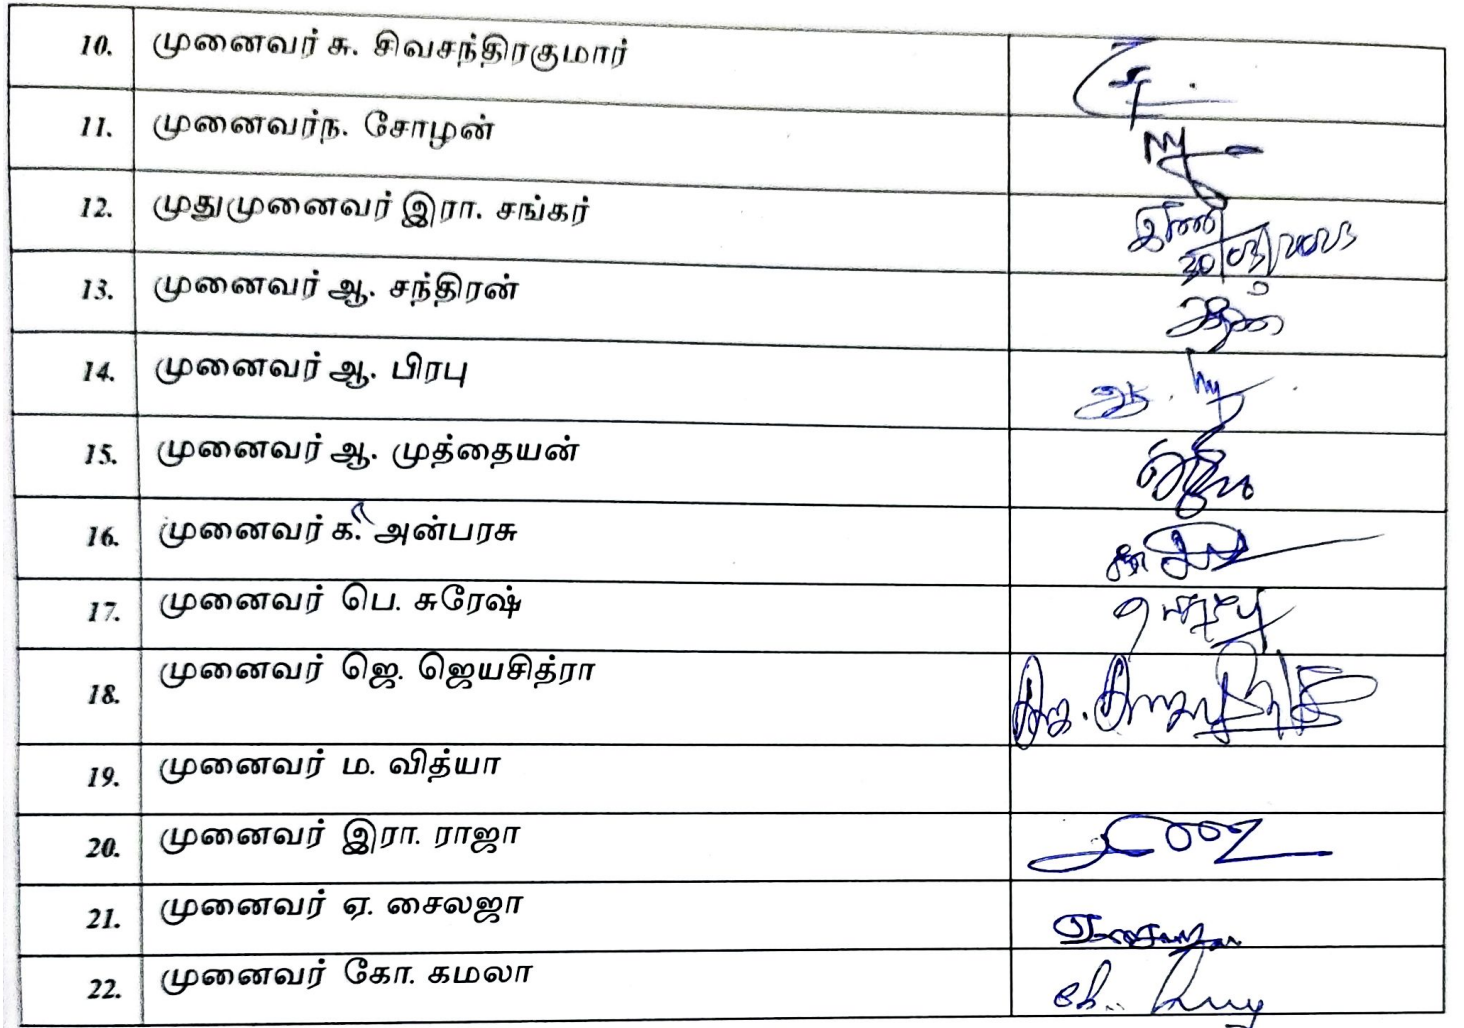 10. முனைவர் சு. சிவசந்திரகுமார்
11. முனைவர்ந. சோழன்
12. முதுமுனைவர் இரா. சங்கர்
13. முனைவர் ஆ. சந்திரன்
14. முனைவர் ஆ. பிரபு
15. முனைவர் ஆ. முத்தையன்
16. முனைவர் க. அன்பரசு
17. முனைவர் பெ. சுரேஷ்
18. முனைவர் ஜெ. ஜெயசித்ரா
19. முனைவர் ம. வித்யா
20. முனைவர் இரா. ராஜா
21. முனைவர் ஏ. சைலஜா
22. முனைவர் கோ. கமலா